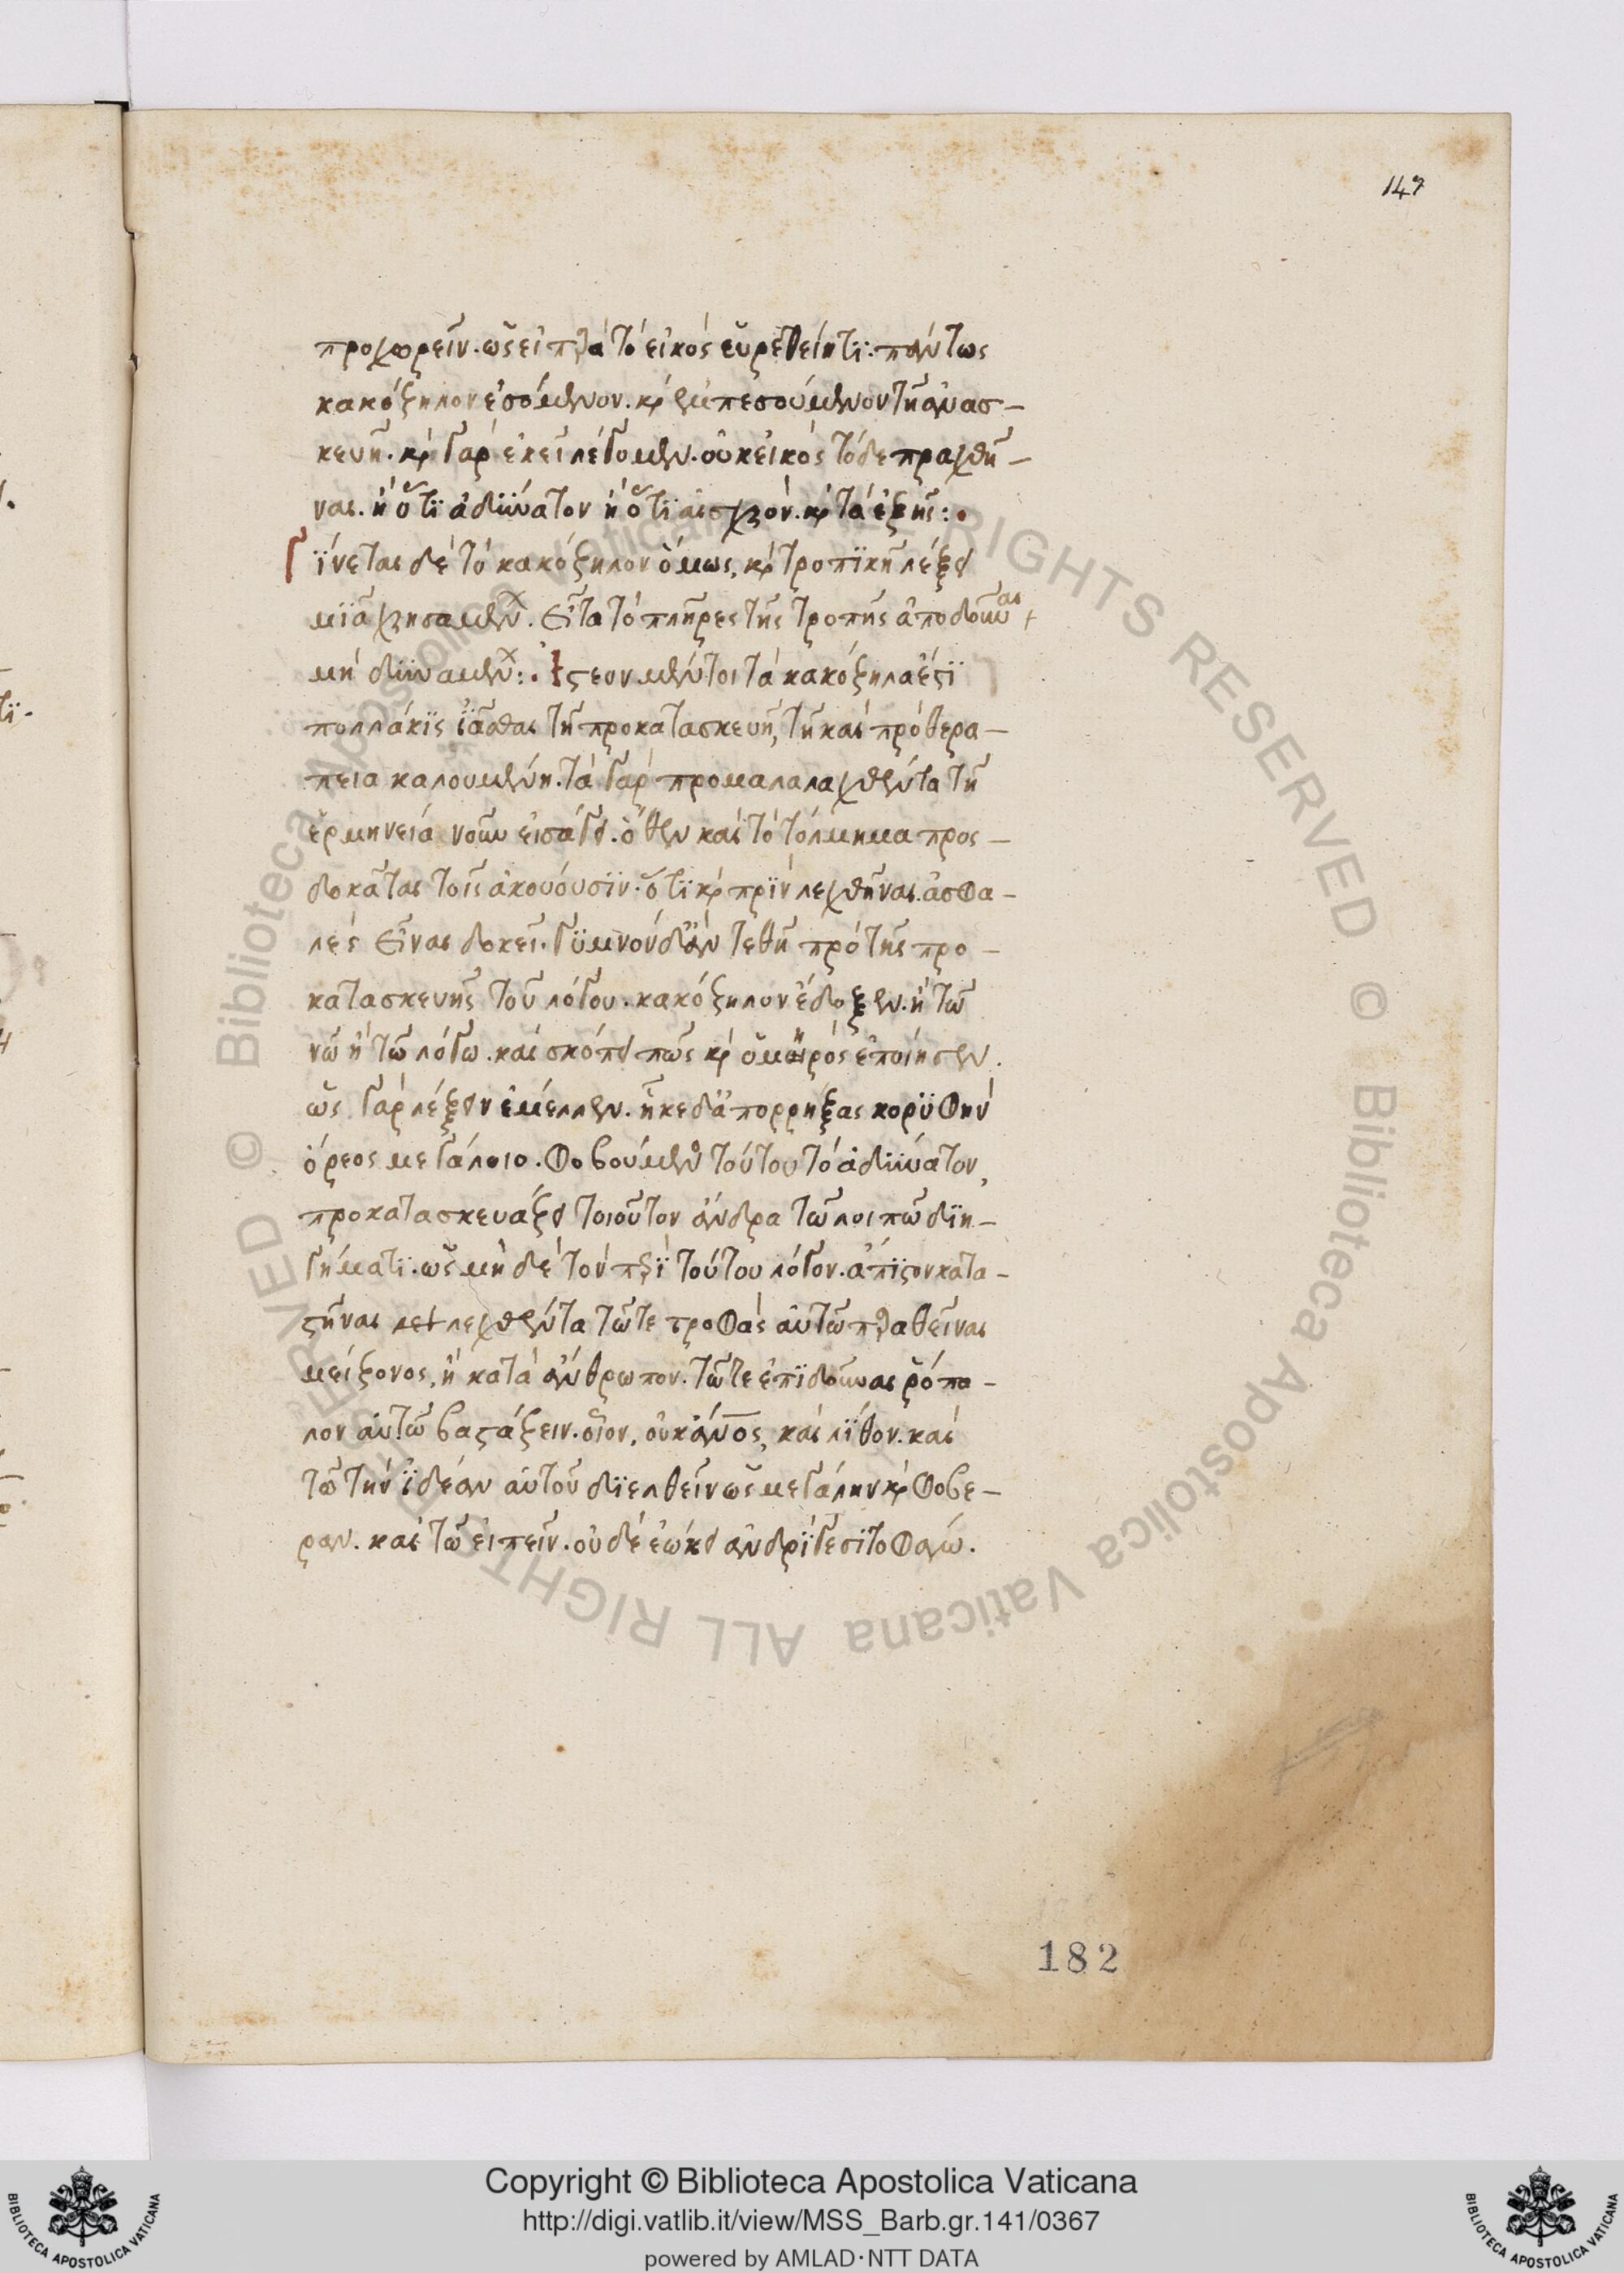 147
προχωρεῖν. ὡς εἰ παρὰ τὸ εἰκὸς εὑρεθείη τϊ. πάντως
κακόζηλον ἐσόμενον. καὶ ἐμπεσούμενον τῆ ἀνασ-
κευῆ. καὶ γὰρ ἐκεῖ λέγομεν. οὐκ εἰκὸς τόδε πραχθῆ-
ναι. ἢ ὅτϊ ἀδϋνατον ἢ ὅτϊ αἰσχρὸν. καὶ τὰ ἑξῆς :.
Γΐνεται δὲ τὸ κακόζηλον ὅμως, καὶ τροπϊκῆ λέξει
μϊᾶ χρησαμένων. εἶτα τὸ πλῆρες τῆς τροπῆς ἀποδοῦναι
μὴ δϋναμένων :. Ἰστέον μέντοι τὰ κακόζηλα ἔστϊ
πολλάκϊς ϊᾶσθαι τῆ προκατασκευῆ, τῆ καὶ πρὸθερα-
πεια καλουμένη. τὰ γὰρ προμαλαλαχθέντα τῆ
ἑρμηνεία νοῦν εἰσάγει. ὅθεν καὶ τὸ τόλμημα προς-
δοκᾶται τοῖς ἀκουόυσϊν. ὅτϊ καὶ πρϊν λεχθῆναι. ἀσφα-
λὲς εἶναι δοκεῖ. γϋμνὸν δ' ἂν τεθῆ πρὸ τῆς προ-
κατασκευῆς τοῦ λόγου. κακόζηλον ἔδοξεν. ἢ τῶ
νῶ ἢ τῶ λόγω. καὶ σκόπει πῶς καὶ ὅμηρός ἐποίησεν.
ὡς γὰρ λέξειν ἔμέλλεν. ἧκε δ' ἀπορρήξας κορϋφὴν
ὄρεος μεγάλοιο. φοβούμενος τούτου τὸ ἀδϋνατον,
προκατασκευάζει τοιοῦτον ἄνδρα τῶ λοιπῶ δϊη-
γήματϊ. ὡς μὴ δὲ τὸν περὶ τούτου λόγον. ἄπϊστον κατα-
στῆναι λεχθέντα τῶ τε τροφὰς αὐτῶ παραθεῖναι
μείζονος, ἢ κατὰ ἄνθρωπον. τῶ τε ἐπϊδοῦναι ῥόπα-
λον αὐτῶ βαστάζειν. οἷον, οὐκ ἄνος, καὶ λΐθον. καὶ
τῶ τὴν ϊδέαν αὐτοῦ δϊελθεῖν ὡς μεγάλην καὶ φοβε-
ραν. καὶ τῶ εἰπεῖν. οὐδὲ ἐώκει ἀνδρΐ γε σιτοφάγω.
182
© Biblioteca Apostolica Vaticana ALL RIGHTS RESERVED © Biblioteca Apostolica Vaticana ALL RIGHTS RESERVED
BIBLIOTECA APOSTOLICA VATICANA
Copyright © Biblioteca Apostolica Vaticana
http://digi.vatlib.it/view/MSS_Barb.gr.141/0367
powered by AMLAD·NTT DATA
BIBLIOTECA APOSTOLICA VATICANA